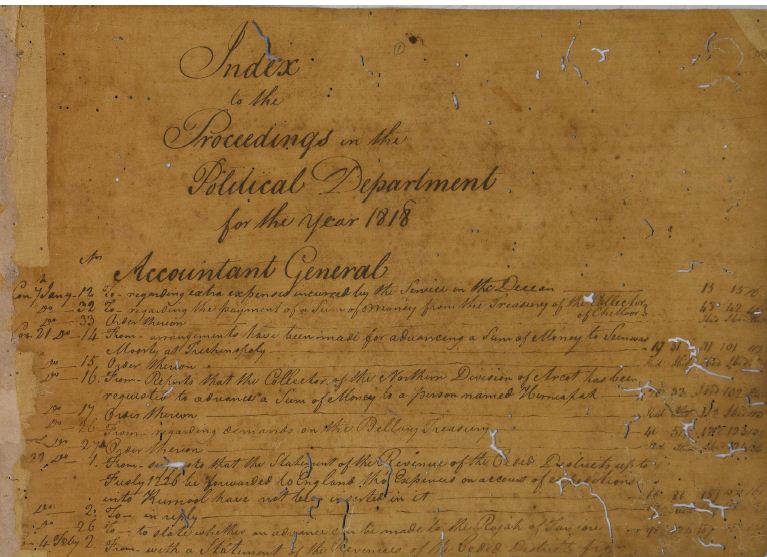 Index
to the
Proceedings in the
Political Department
for the Year 1818
Nos
Accountant General
Con 7 Jany - 12 To - regarding extra expenses incurred by the Service in the Deccan 13
do - 32 To - regarding the payment of a Sum of Money from the Treasury of the Collector 43 42
of Chittoor
do - 33 Order thereon
Con 21 do - 14 From - arrangements have been made for advancing a Sum of Money to
Moorty at Trichinopoly
do - 15 Order thereon
do - 16 From - Reports that the Collector of the Northern Division of Arcot has been
requested to advance a Sum of Money to a person named
do - 17 Order thereon
do - 26 From - regarding demands on the Bellary Treasury
do - 27 Order thereon
do - 1 From - suggests that the Statement of the Revenue of the Ceded Districts up to
Fusly 1226 be forwarded to England, the Expences on account of
into Kurnool have not been inserted in it
do - 2 To - in reply
do - 26 To - to state whether an advance can be made to the Rajah of Tanjore
Feby 2 From - with a Statement of the Revenues of the Ceded Districts for